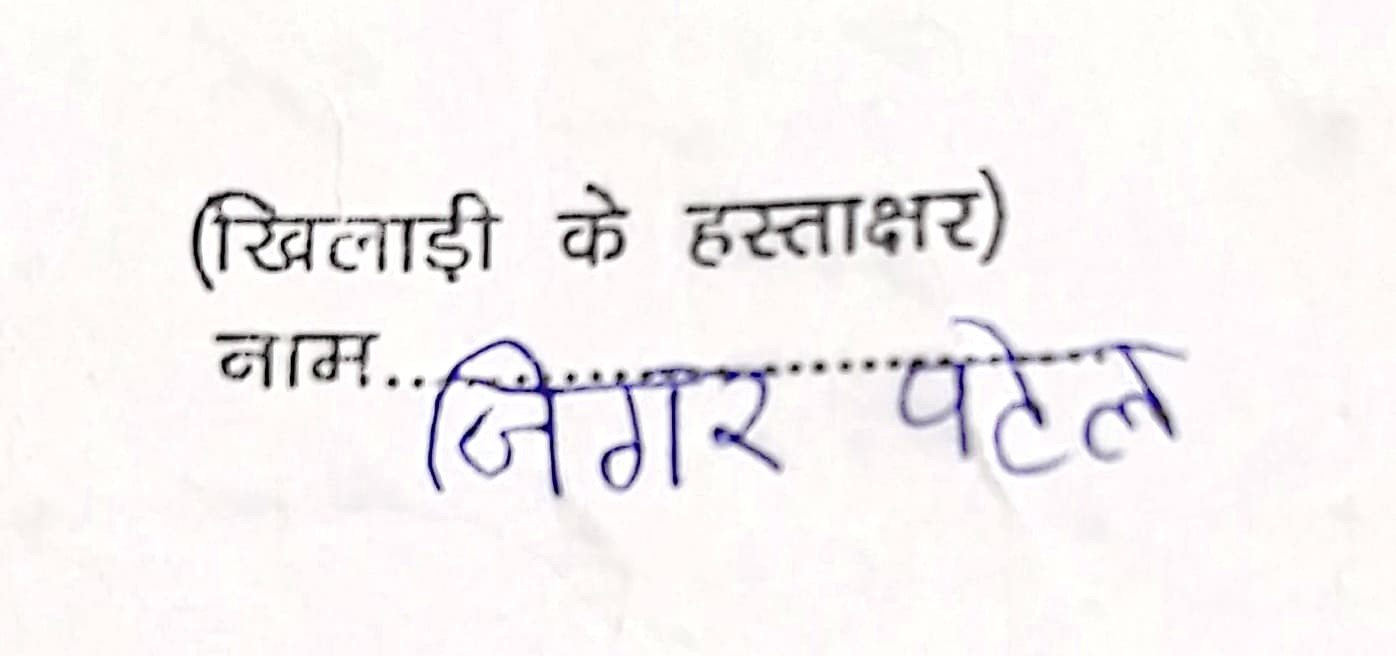 (खिलाड़ी के हस्ताक्षर)
नाम.......................... जिगर पटेल